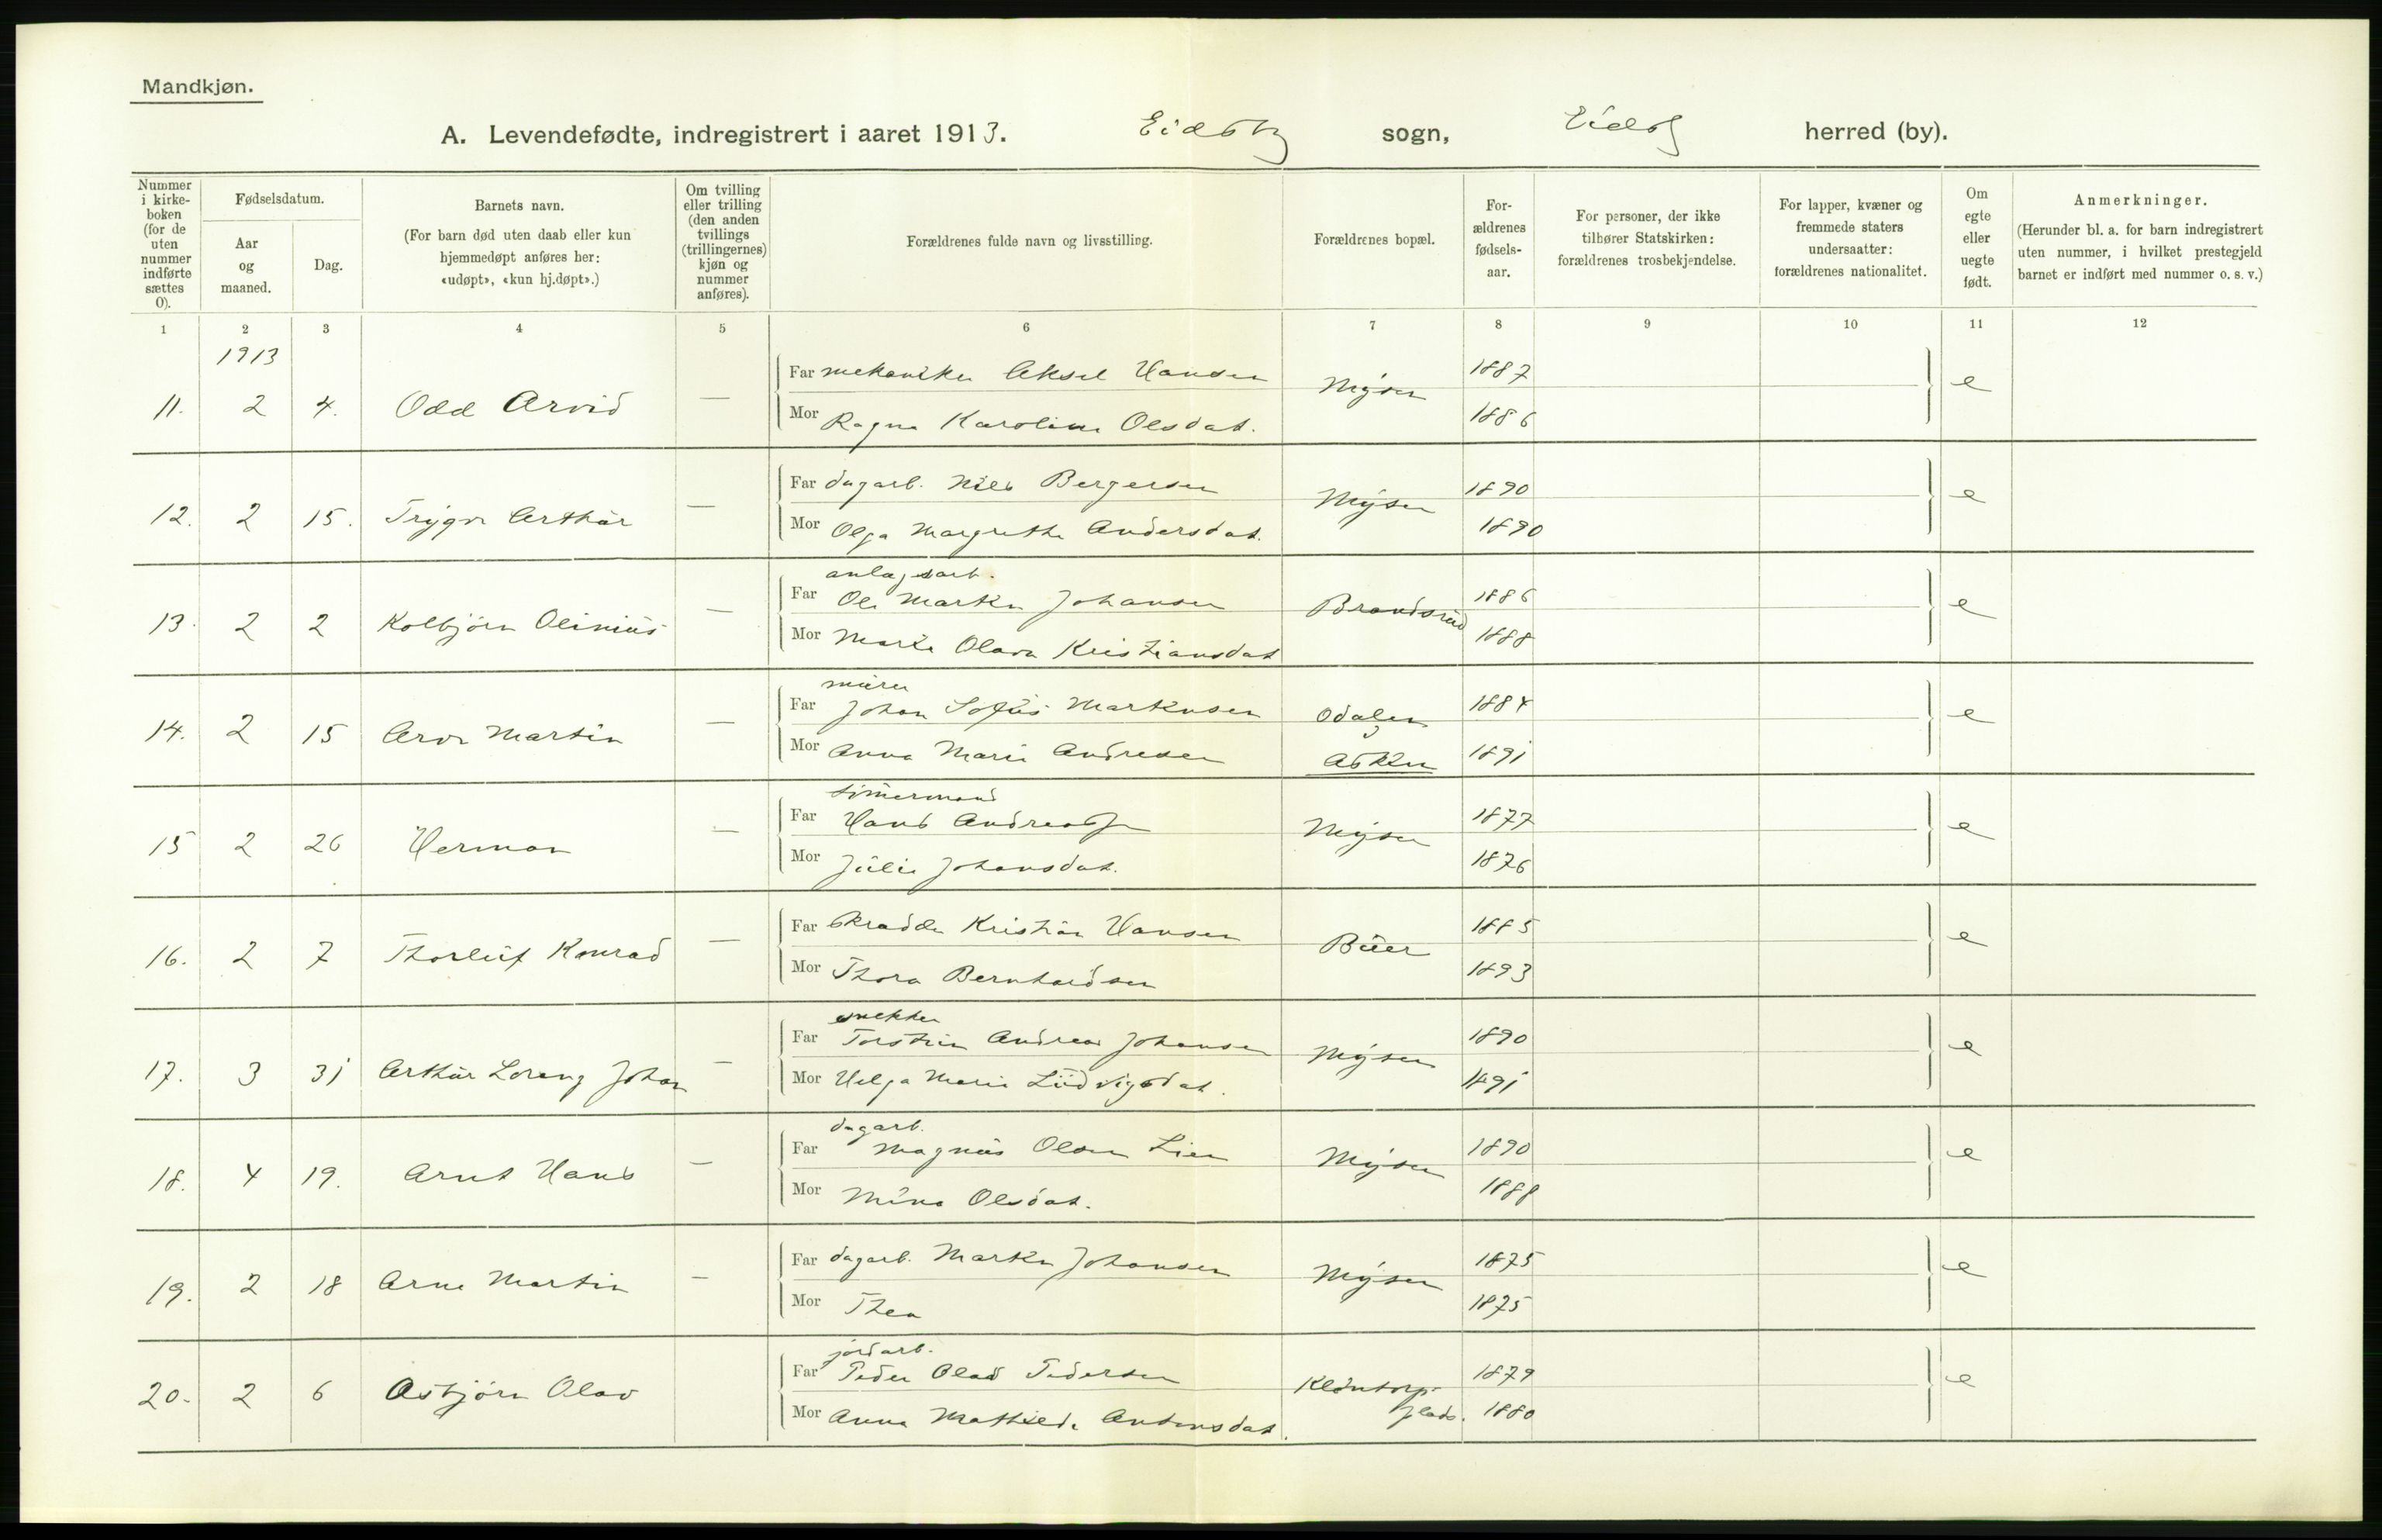 Mandkjøn.
A. Levendefødte, indregistrert i aaret 1913. Eidsbg sogn, Eidsbg herred (by).
Nummer i kirkeboken (for de uten nummer indførte sættes 0).
Fødselsdatum.
Aar og maaned.
Dag.
Barnets navn.
(For barn død uten daab eller kun hjemmedøpt anføres her: «udøpt», «kun hj.døpt».)
Om tvilling eller trilling (den anden tvillings (trillingernes) kjøn og nummer anføres).
Forældrenes fulde navn og livsstilling.
Forældrenes bopæl.
Forældrenes fødselsaar.
For personer, der ikke tilhører Statskirken: forældrenes trosbekjendelse.
For lapper, kvæner og fremmede staters undersaatter: forældrenes nationalitet.
Om egte eller uegte født.
Anmerkninger.
(Herunder bl. a. for barn indregistrert uten nummer, i hvilket prestegjeld barnet er indført med nummer o. s. v.)
1 2 3 4 5 6 7 8 9 10 11 12
1913
11. 2 4. Odd Arvid — Far mekaniker Aksel Hansen Mysen 1887 e
Mor Ragna Karoline Olsdat. 1886
12. 2 15. Trygve Arthur — Far dagarb. Nils Bergersen Mysen 1890 e
Mor Olga Margrethe Andersdat. 1890
anlægsarb.
13. 2 2 Kolbjörn Olinius — Far Ole Martin Johansen Brandsrud 1886 e
Mor Marie Olava Kristiansdat 1888
murer
14. 2 15 Arve Martin — Far Johan Sofus Markusen Odalen 1884 e
Mor Anna Marie Andresen Askim 1891
timermand
15 2 26 Herman — Far Hans Andreas Mysen 1877 e
Mor Julie Johansdat. 1876
16. 2 7 Thorleif Konrad — Far skradder Kristian Hansen Buer 1885 e
Mor Thora Bernhardsen 1893
snekker
17. 3 31 Arthur Lorang Johan — Far Torstein Andreas Johansen Mysen 1890 e
Mor Helga Marie Ludvigsdat. 1891
dagarb.
18. 4 19. Arnt Hans — Far Magnus Olsen Lien Mysen 1890 e
Mor Mina Olsdat. 1888
19. 2 18 Arne Martin — Far dagarb. Martin Johansen Mysen 1875 e
Mor Thea 1875
jordarb.
20. 2 6 Asbjörn Olav Far Peder Olav Pedersen plads. 1879 e
Mor Anna Mathilde Antonsdat. 1880